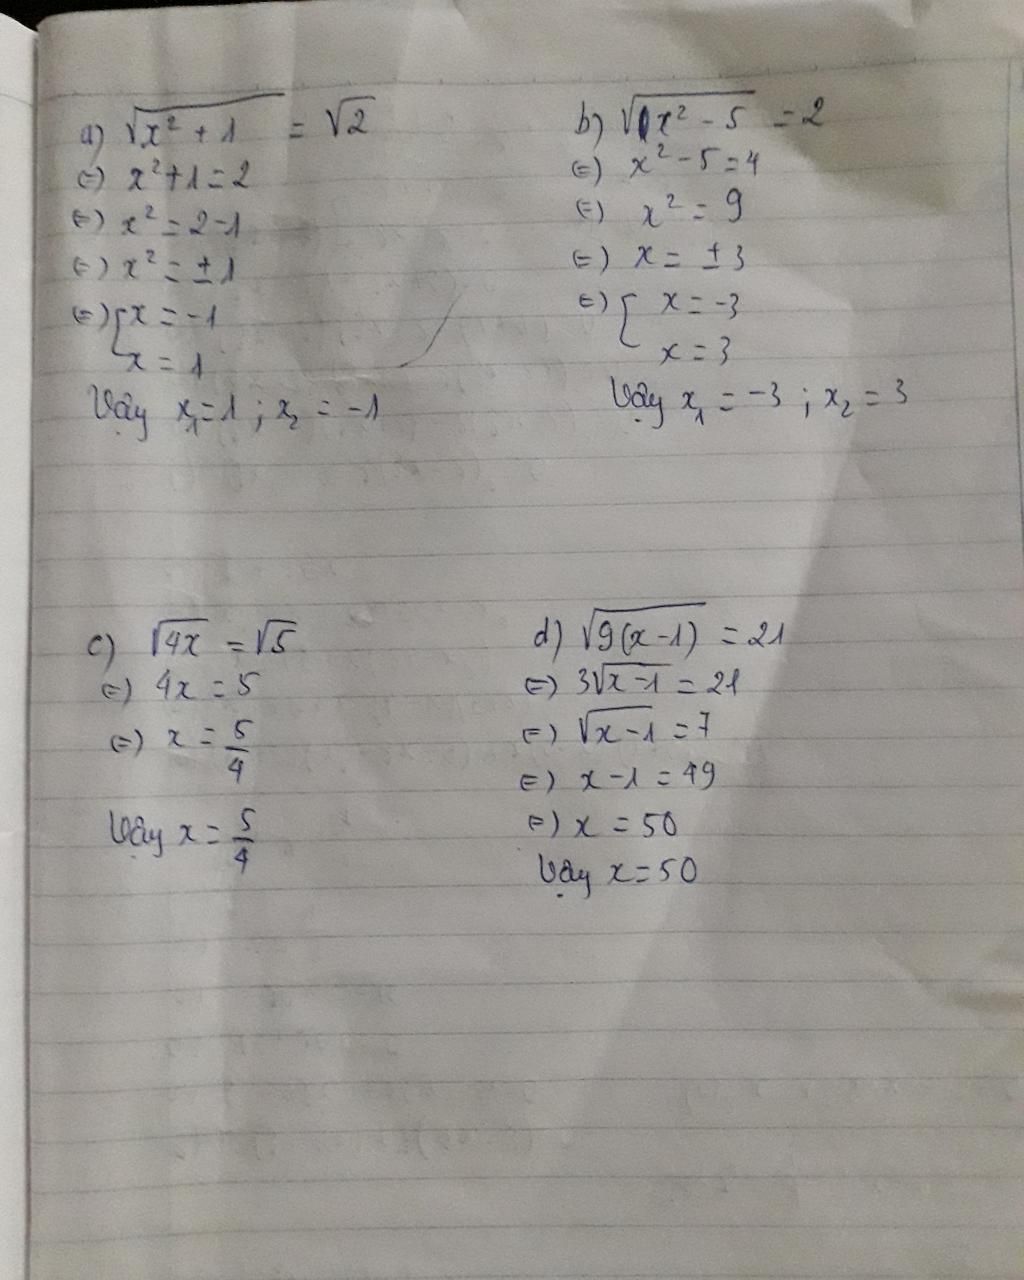 a) √(x² + 1) = √2
(=) x²+1=2
(=) x² = 2-1
(=) x² = ±1
(=) [x = -1
x = 1
Vậy x₁=1 ; x₂ = -1
b) √(x² - 5) = 2
(=) x² - 5 = 4
(=) x² = 9
(=) x = ±3
(=) [ x = -3
x = 3
Vậy x₁ = -3 ; x₂ = 3
c) √4x = √5
(=) 4x = 5
(=) x = 5/4
Vậy x = 5/4
d) √(9(x-1)) = 21
(=) 3√(x-1) = 21
(=) √(x-1) = 7
(=) x-1 = 49
(=) x = 50
Vậy x=50